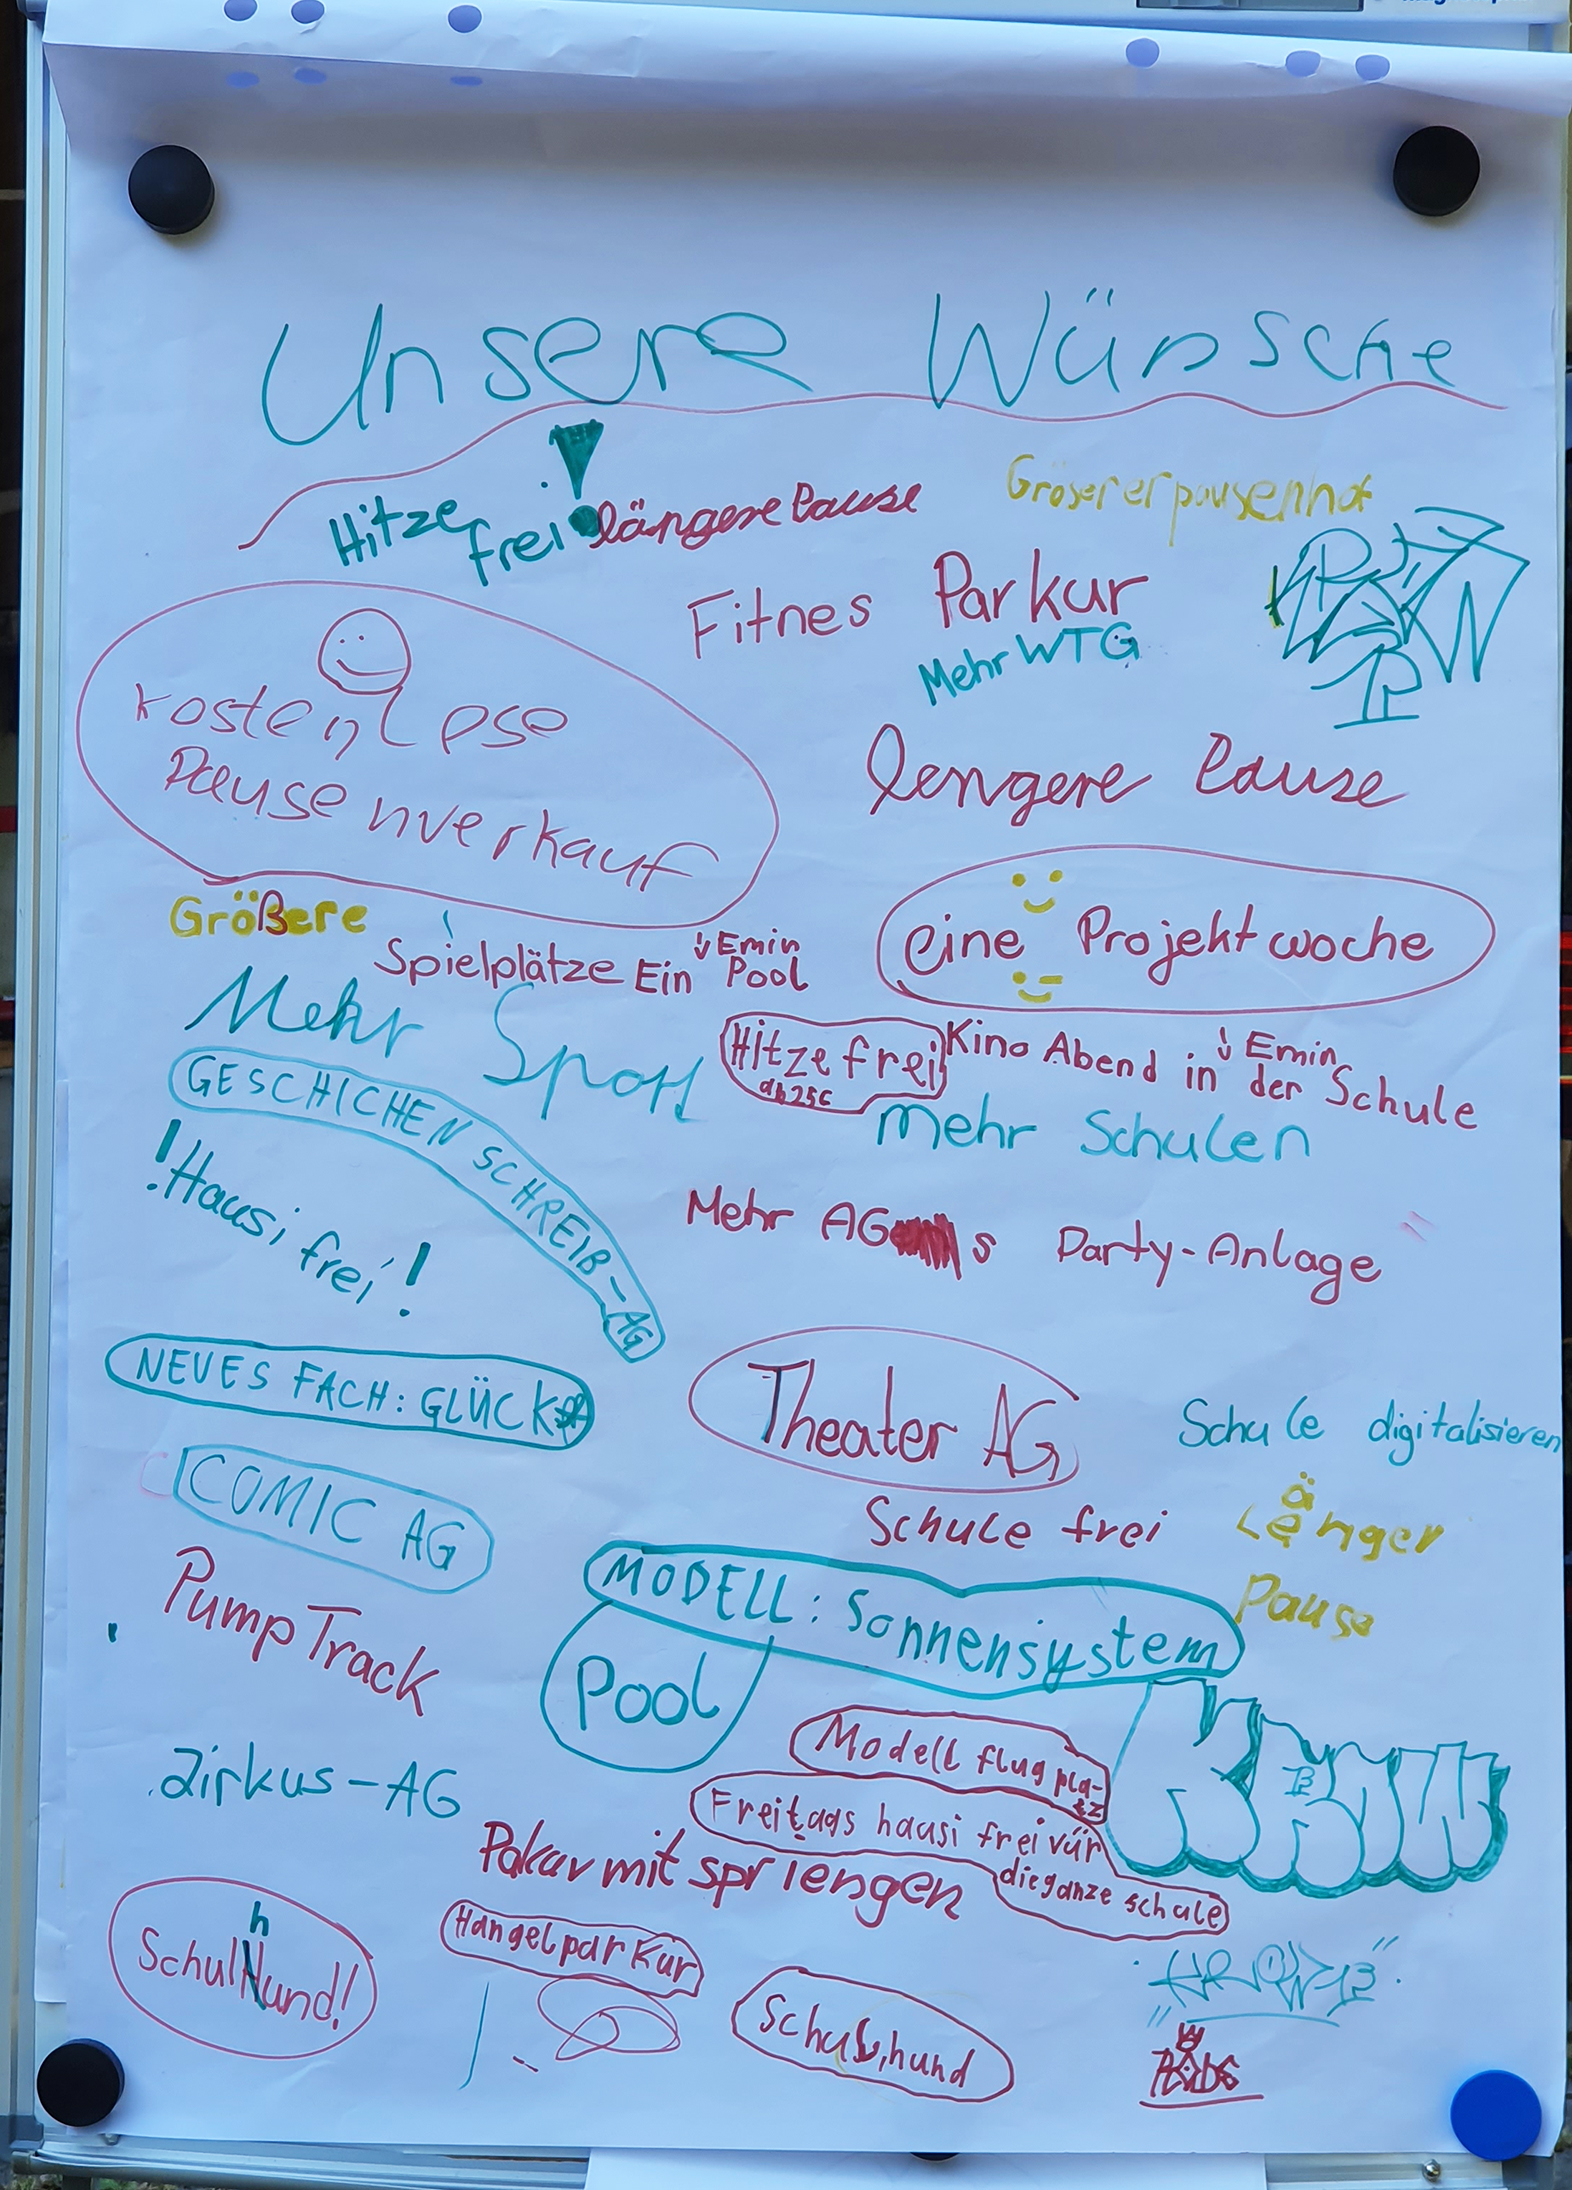 Unsere Wünsche
Hitze frei!
längere Pause
Gröserer pausenhof
Fitnes Parkur
Mehr WTG
kostenlose
Pausenverkauf
lengere Pause
Größere
Spielplätze
Ein Pool
↓ Emin
eine Projektwoche
Mehr Sport
Hitzefrei
ab 25C
Kino Abend in der Schule
↓ Emin
mehr Schulen
GESCHICHEN SCHREIB-AG
! Hausi frei!
Mehr AG s
Party-Anlage
NEUES FACH: GLÜCK
Theater AG
Schule digitalisieren
COMIC AG
Schule frei
Länger
ä
Pause
Pump Track
MODELL: Sonnensystem
Pool
Modell flug pla-
tz
Zirkus-AG
Freitags hausi frei vür
die ganze schule
Pakur mit spriengen
Schulhund!
Hangelparkur
Schulhund